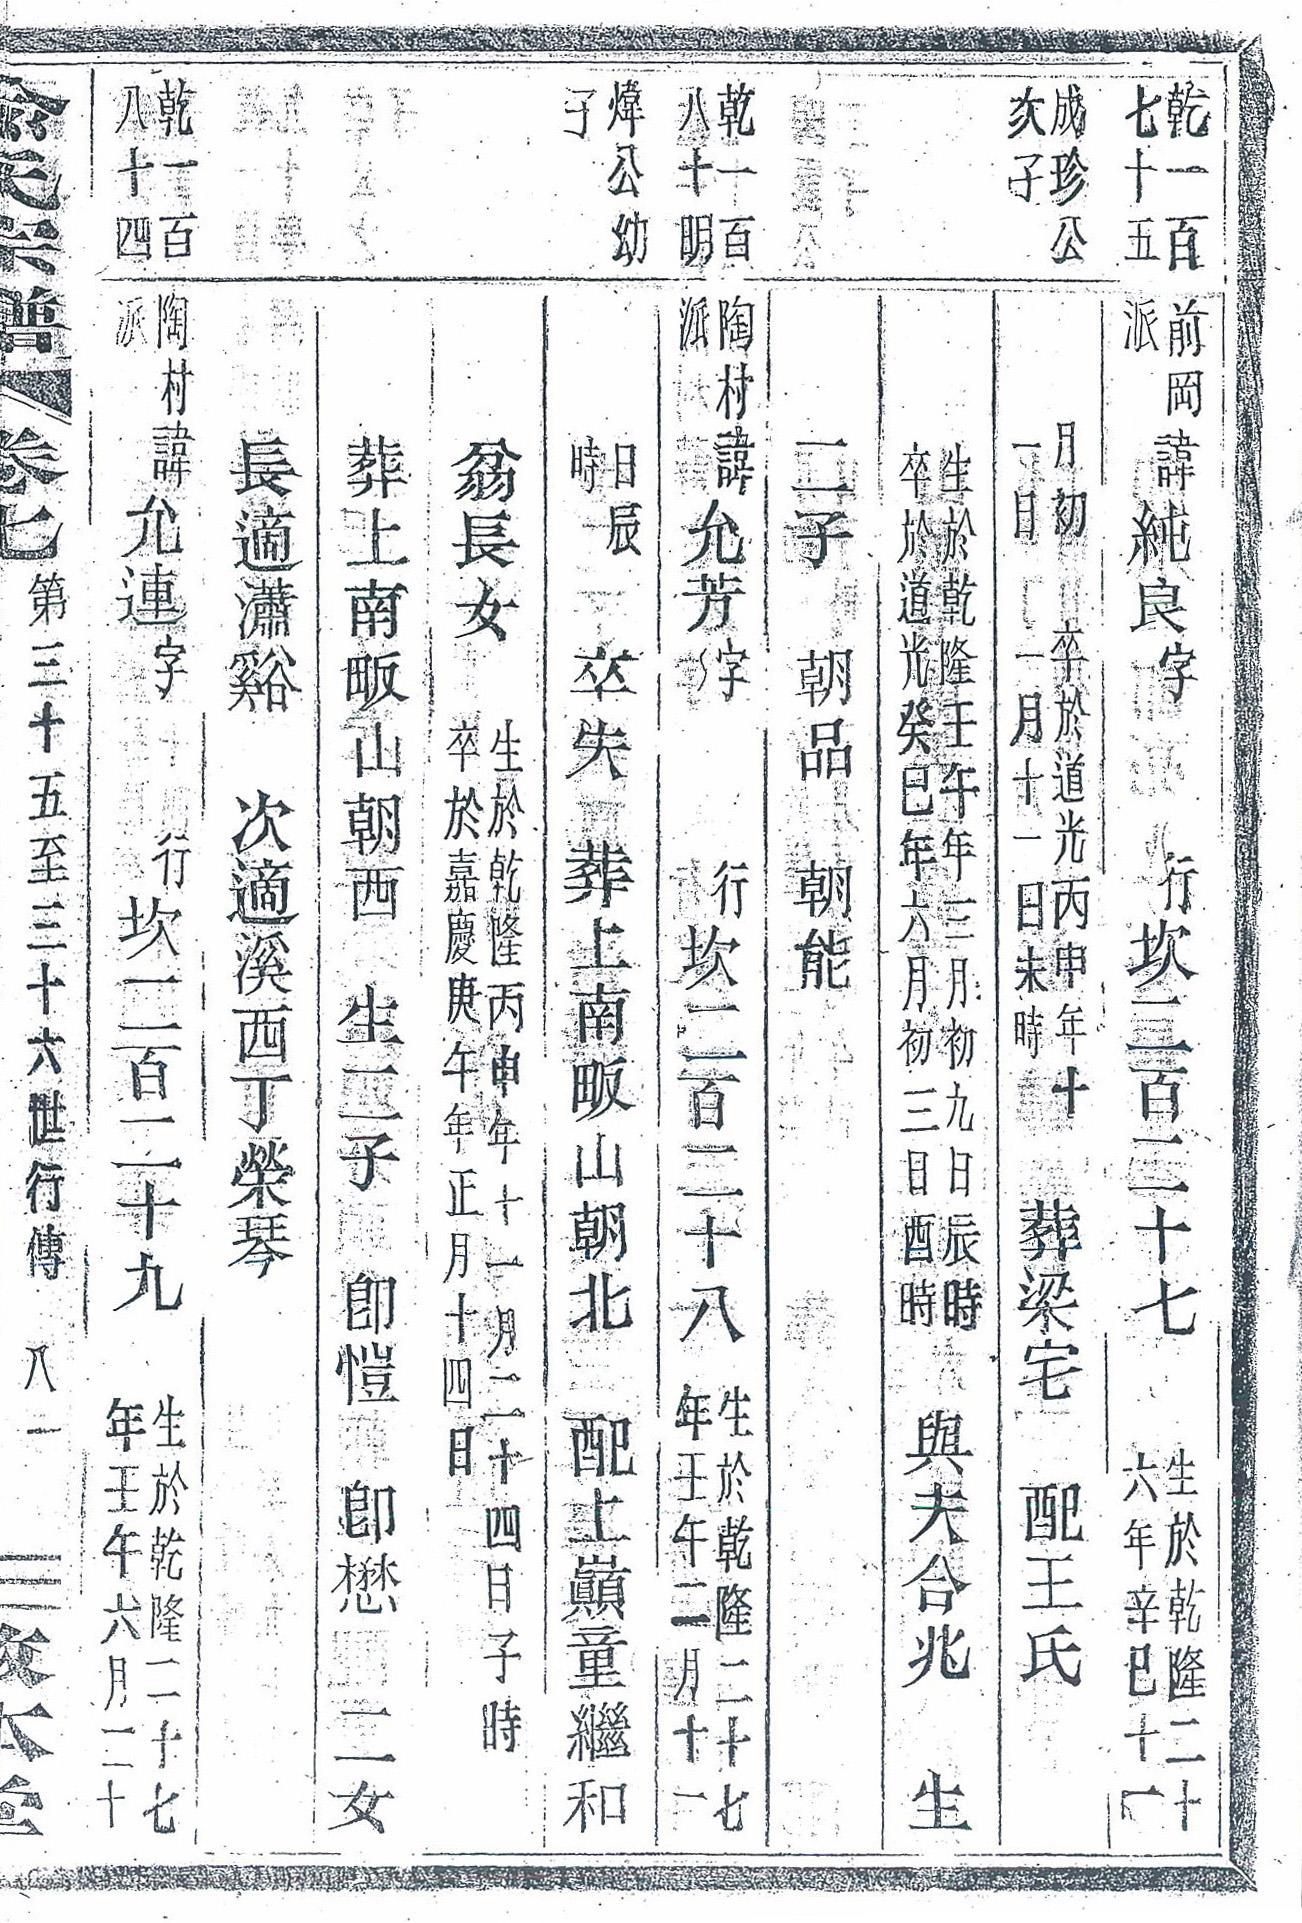 乾一百七十五
成珍公次子
前岡派諱純良字 行坎二百二十七 生於乾隆二十六年辛巳十一
月初一日 卒於道光丙申年十一月十一日未時 葬梁宅 配王氏
生於乾隆壬午年三月初九日辰時 卒於道光癸巳年六月初三日酉時 與夫合兆 生
二子 朝品 朝能
乾一百八十明
煒公幼子
陶村派諱允芳字 行坎二百二十八 生於乾隆二十七年壬午二月十一
日辰時 卒失 葬上南畈山朝北 配上巔童繼和
翁長女 生於乾隆丙申年十一月二十四日子時 卒於嘉慶庚午年正月十四日
葬上南畈山朝西 生二子 卽愷 卽懋 二女
長適瀟谿 次適溪西丁榮琴
乾一百八十四
陶村派諱允連字 行坎二百二十九 生於乾隆二十七年壬午六月二十
氏宗譜 卷七 第三十五至三十六世行傳 八一 敦本堂